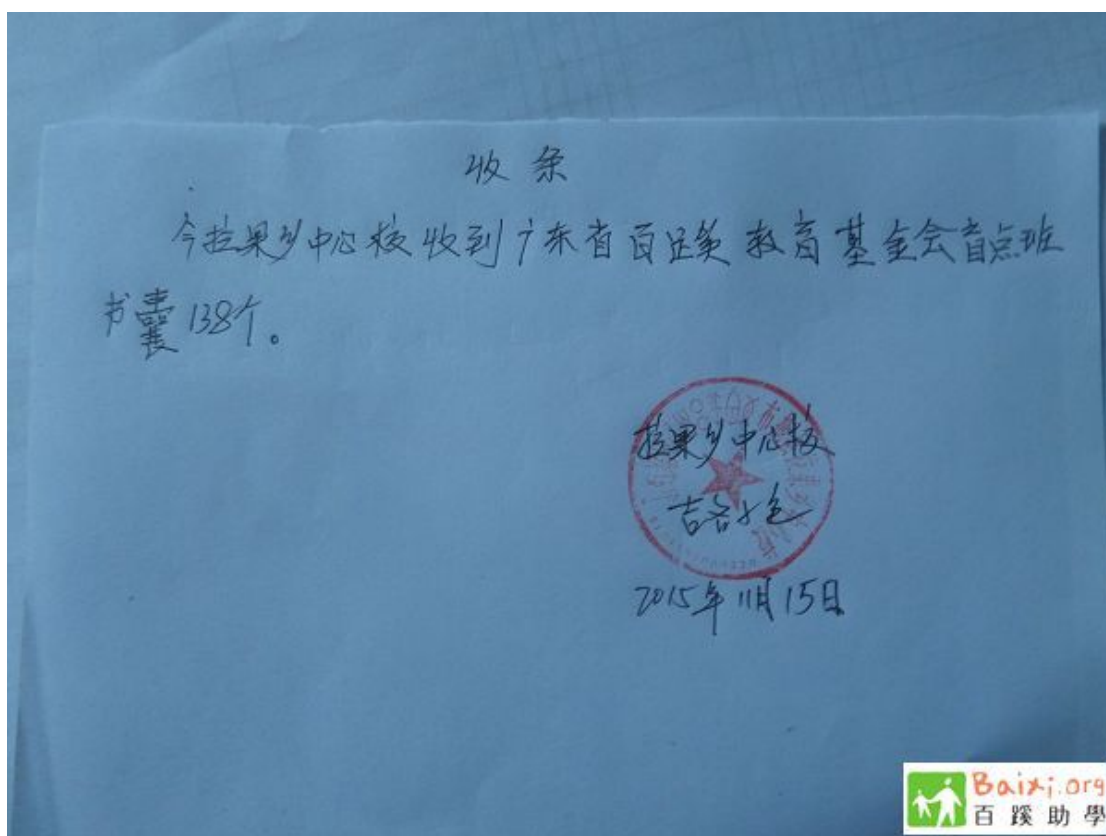 收条
今拉果乡中心校收到广东省百蹊教育基金会盲点班
书囊138个。
拉果乡中心校
吉各
2015年11月15日
Baixi.org
百蹊助學